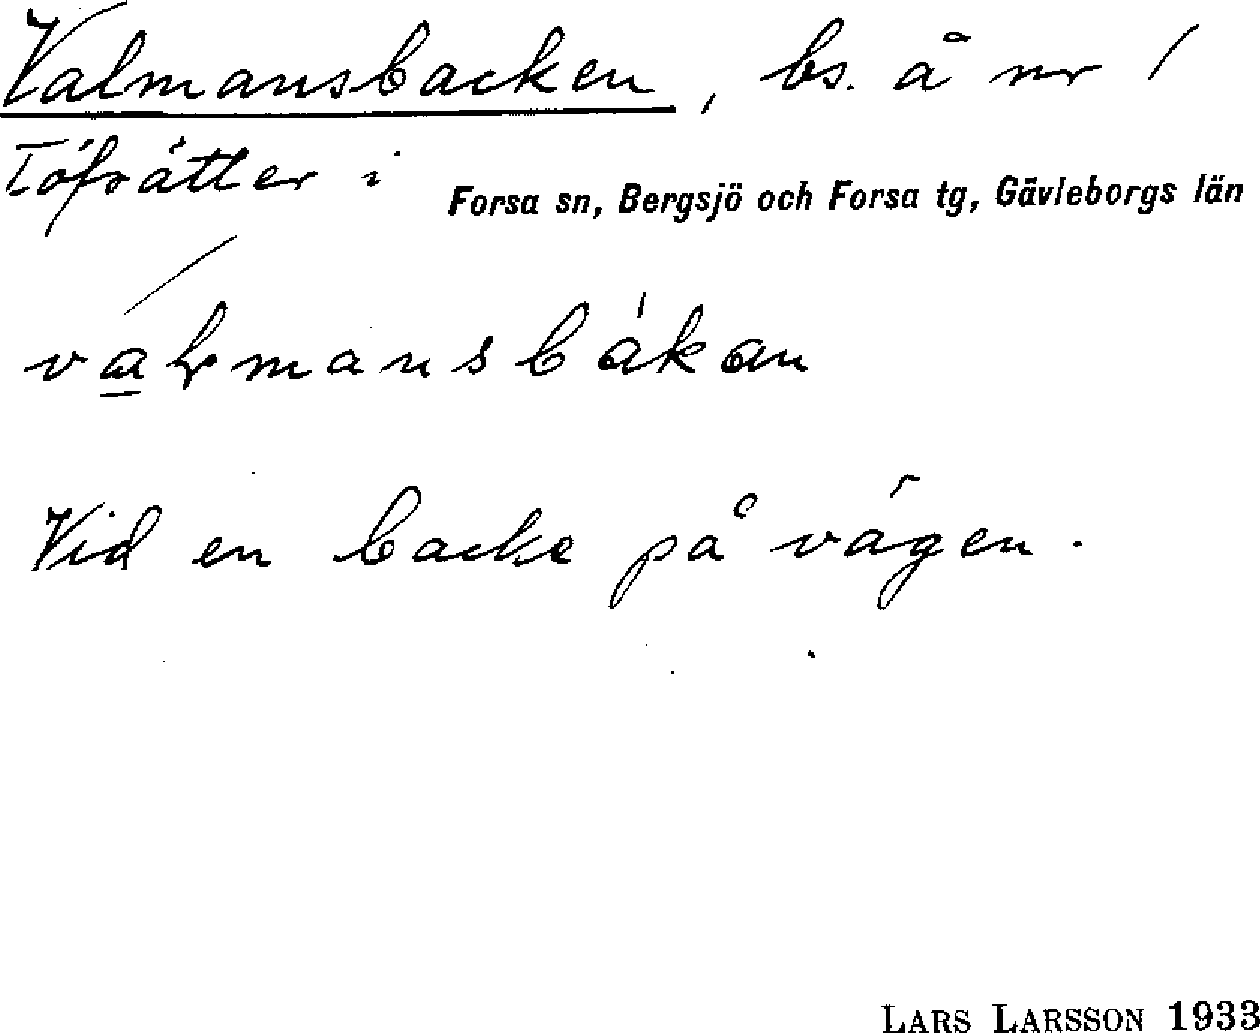 Valmansbacken, bs. å nr 1
Töfsätter i Forsa sn, Bergsjö och Forsa tg, Gävleborgs län
mansbákan
Vid en backe på vägen.
LARS LARSSON 1933